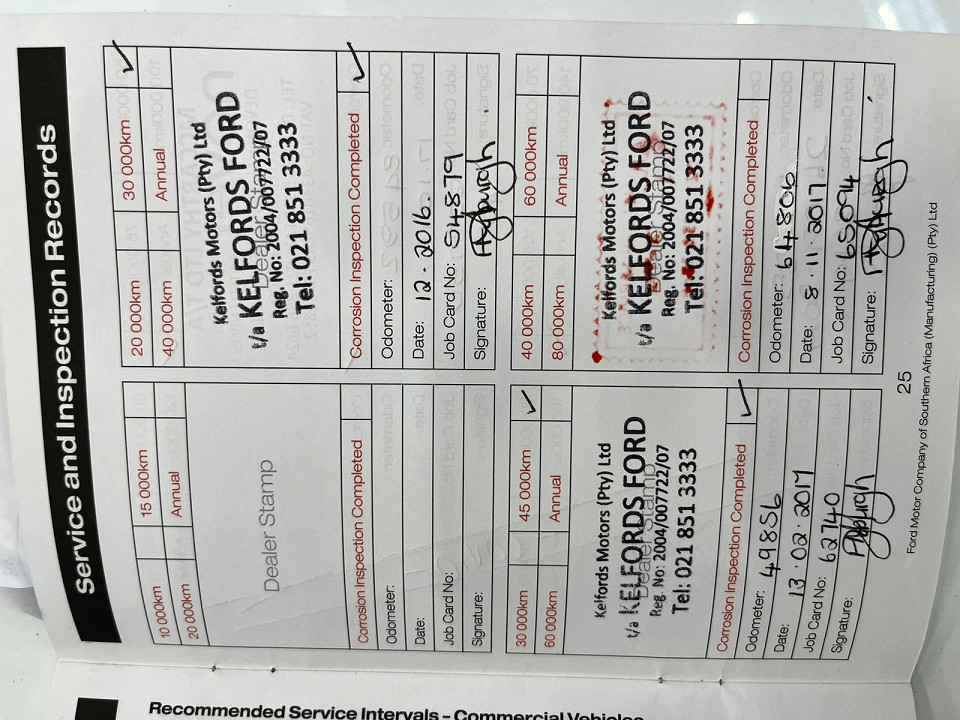 Service and Inspection Records
10 000km
15 000km
20 000km
Annual
Dealer Stamp
Corrosion Inspection Completed
Odometer:
Date:
Job Card No:
Signature:
20 000km
30 000km ✓
40 000km
Annual
Kelfords Motors (Pty) Ltd
t/a KELFORDS FORD
Dealer Stamp
Reg. No: 2004/007722/07
Tel: 021 851 3333
Corrosion Inspection Completed ✓
Odometer:
Date: 12 · 2016.
Job Card No: 54879
Signature:
30 000km
45 000km ✓
60 000km
Annual
Kelfords Motors (Pty) Ltd
t/a KELFORDS FORD
Dealer Stamp
Reg. No: 2004/007722/07
Tel: 021 851 3333
Corrosion Inspection Completed ✓
Odometer: 49856
Date: 13 · 02 · 2017
Job Card No: 62740
Signature:
40 000km
60 000km
80 000km
Annual
Kelfords Motors (Pty) Ltd
t/a KELFORDS FORD
Dealer Stamp
Reg. No: 2004/007722/07
Tel: 021 851 3333
Corrosion Inspection Completed
Odometer: 64806
Date: 8 · 11 · 2017
Job Card No: 65094
Signature:
25
Ford Motor Company of Southern Africa (Manufacturing) (Pty) Ltd
Recommended Service Intervals – Commercial Vehicles